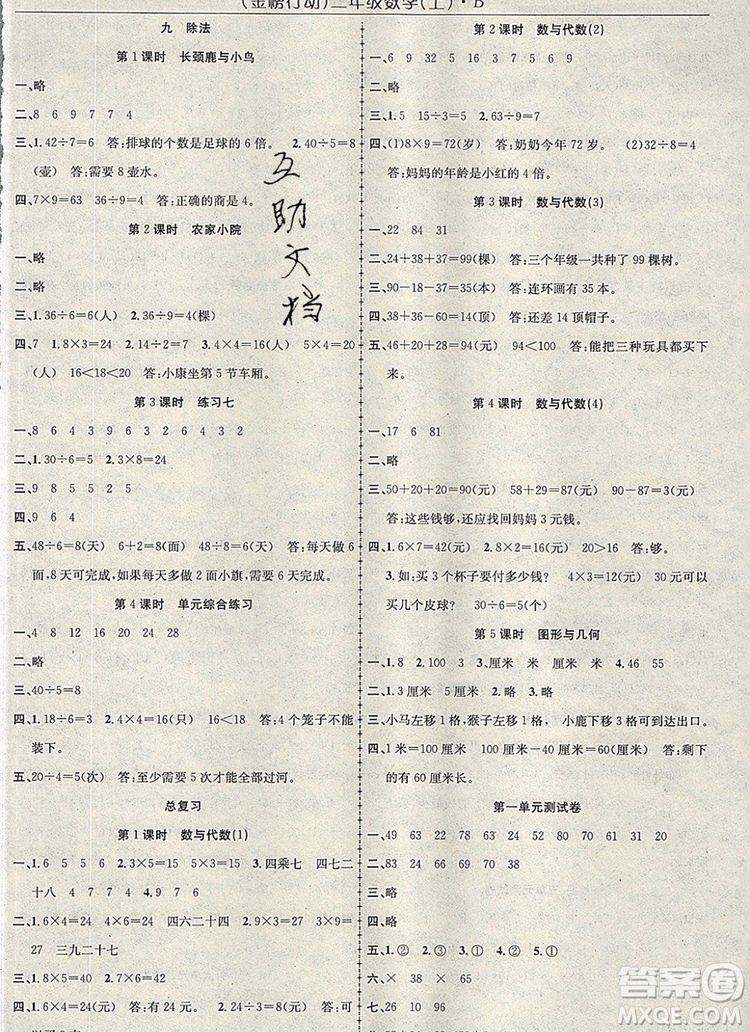 (金榜行动)二年级数学(上)·B
九 除法
第1课时 长颈鹿与小鸟
一、略
二、8 6 9 7 7 4
三、1.42÷7=6 答:排球的个数是足球的6倍。 2.40÷5=8
(壶) 答:需要8壶水。
四、7×9=63 36÷9=4 答:正确的商是4。
第2课时 农家小院
一、略
二、略
三、1.36÷6=6(人) 2.36÷9=4(棵)
四、7 1.8×3=24 2.5×4=20 3.4×4=16 5×4=20
(人) 16<18<20 答:小康坐第5节车厢。
第3课时 练习七
一、8 6 4 3 9 6 3 2 6 4 9 2
二、1.30÷6=5 2.8×3=24
三、9 8 5 5 2 5
四、9 6 4
五、48÷6=8(天) 6+2=8(面) 48÷8=6(天) 答:每天做6
面,8天可完成,如果每天多做2面小旗,需要6天可完成。
第4课时 单元综合练习
一、4 8 12 16 20 24 28
二、略
三、40÷5=8
四、1.30÷5=6 2.4×4=16(只) 16<18 答:4个笼子不能
装下。
五、20÷4=5(次) 答:至少需要5次才能全部过河。
总复习
第1课时 数与代数(1)
一、1.6 5 5 6 2.3×5=15 5×3=15 3.四乘七 四七二
十八 4 7 7 4 4.7
二、1.6×4=24 4×6=24 四六二十四 2.9×3=27 3×9=
27 三九二十七
三、1.8×5=40 2.9×2=18 3.8×4=32
四、1.6×4=24(元) 答:24元。 2.6×4=24(元) 答:可
第2课时 数与代数(2)
一、6 9 32 15 3 7 5 6 9
二、略
三、1.3 5 15÷3=5 2.63÷7=9 3.8÷2=4
四、(1)8×9=72(岁) 答:奶奶今年72岁。 (2)32÷8=4
答:妈妈的年龄是小红的4倍。
第3课时 数与代数(3)
一、22 84 31
二、24+38+37=99(棵) 答:三个年级一共种了99棵树。
三、90-18-24=48(元) 答:连环画有48本。
四、38+36-60=14(顶) 答:还差14顶帽子。
五、46+20+28=94(元) 94<100 答:能把三种玩具都买下
来。
第4课时 数与代数(4)
一、17 6 81
二、略
三、50+20+20=90(元) 58+29=87(元) 90-87=3(元)
答:这些钱够,还应找回妈妈3元钱。
四、1.6×7=42 2.4×5=20(元) 20>16 答:够。
3.如:买3个杯子要付多少钱? 4×3=12(元) 30元可以
买几个皮球? 30÷6=5(个)
第5课时 图形与几何
一、1.8 2.100 3.厘米 米 厘米 米 4.46 55
二、1.厘米 米 厘米 2.略 3.略
三、小马左移1格,猴子左移1格, 小鹿下移3格可移到出口。
四、1米=100厘米 100-48=52(厘米) 52-48=4(厘米)
答:它的尾巴大约有4厘米长。
第一单元测试卷
一、49 63 22 78 63 24 32 60 31 60 71 20
二、83 24 66 39 84 68
三、略
四、略
五、1.② 2.② 3.① 4.② 5.①
六、× 38 × 65 ×
七、26 10 96
互助文档
答案圈
MXQE.COM